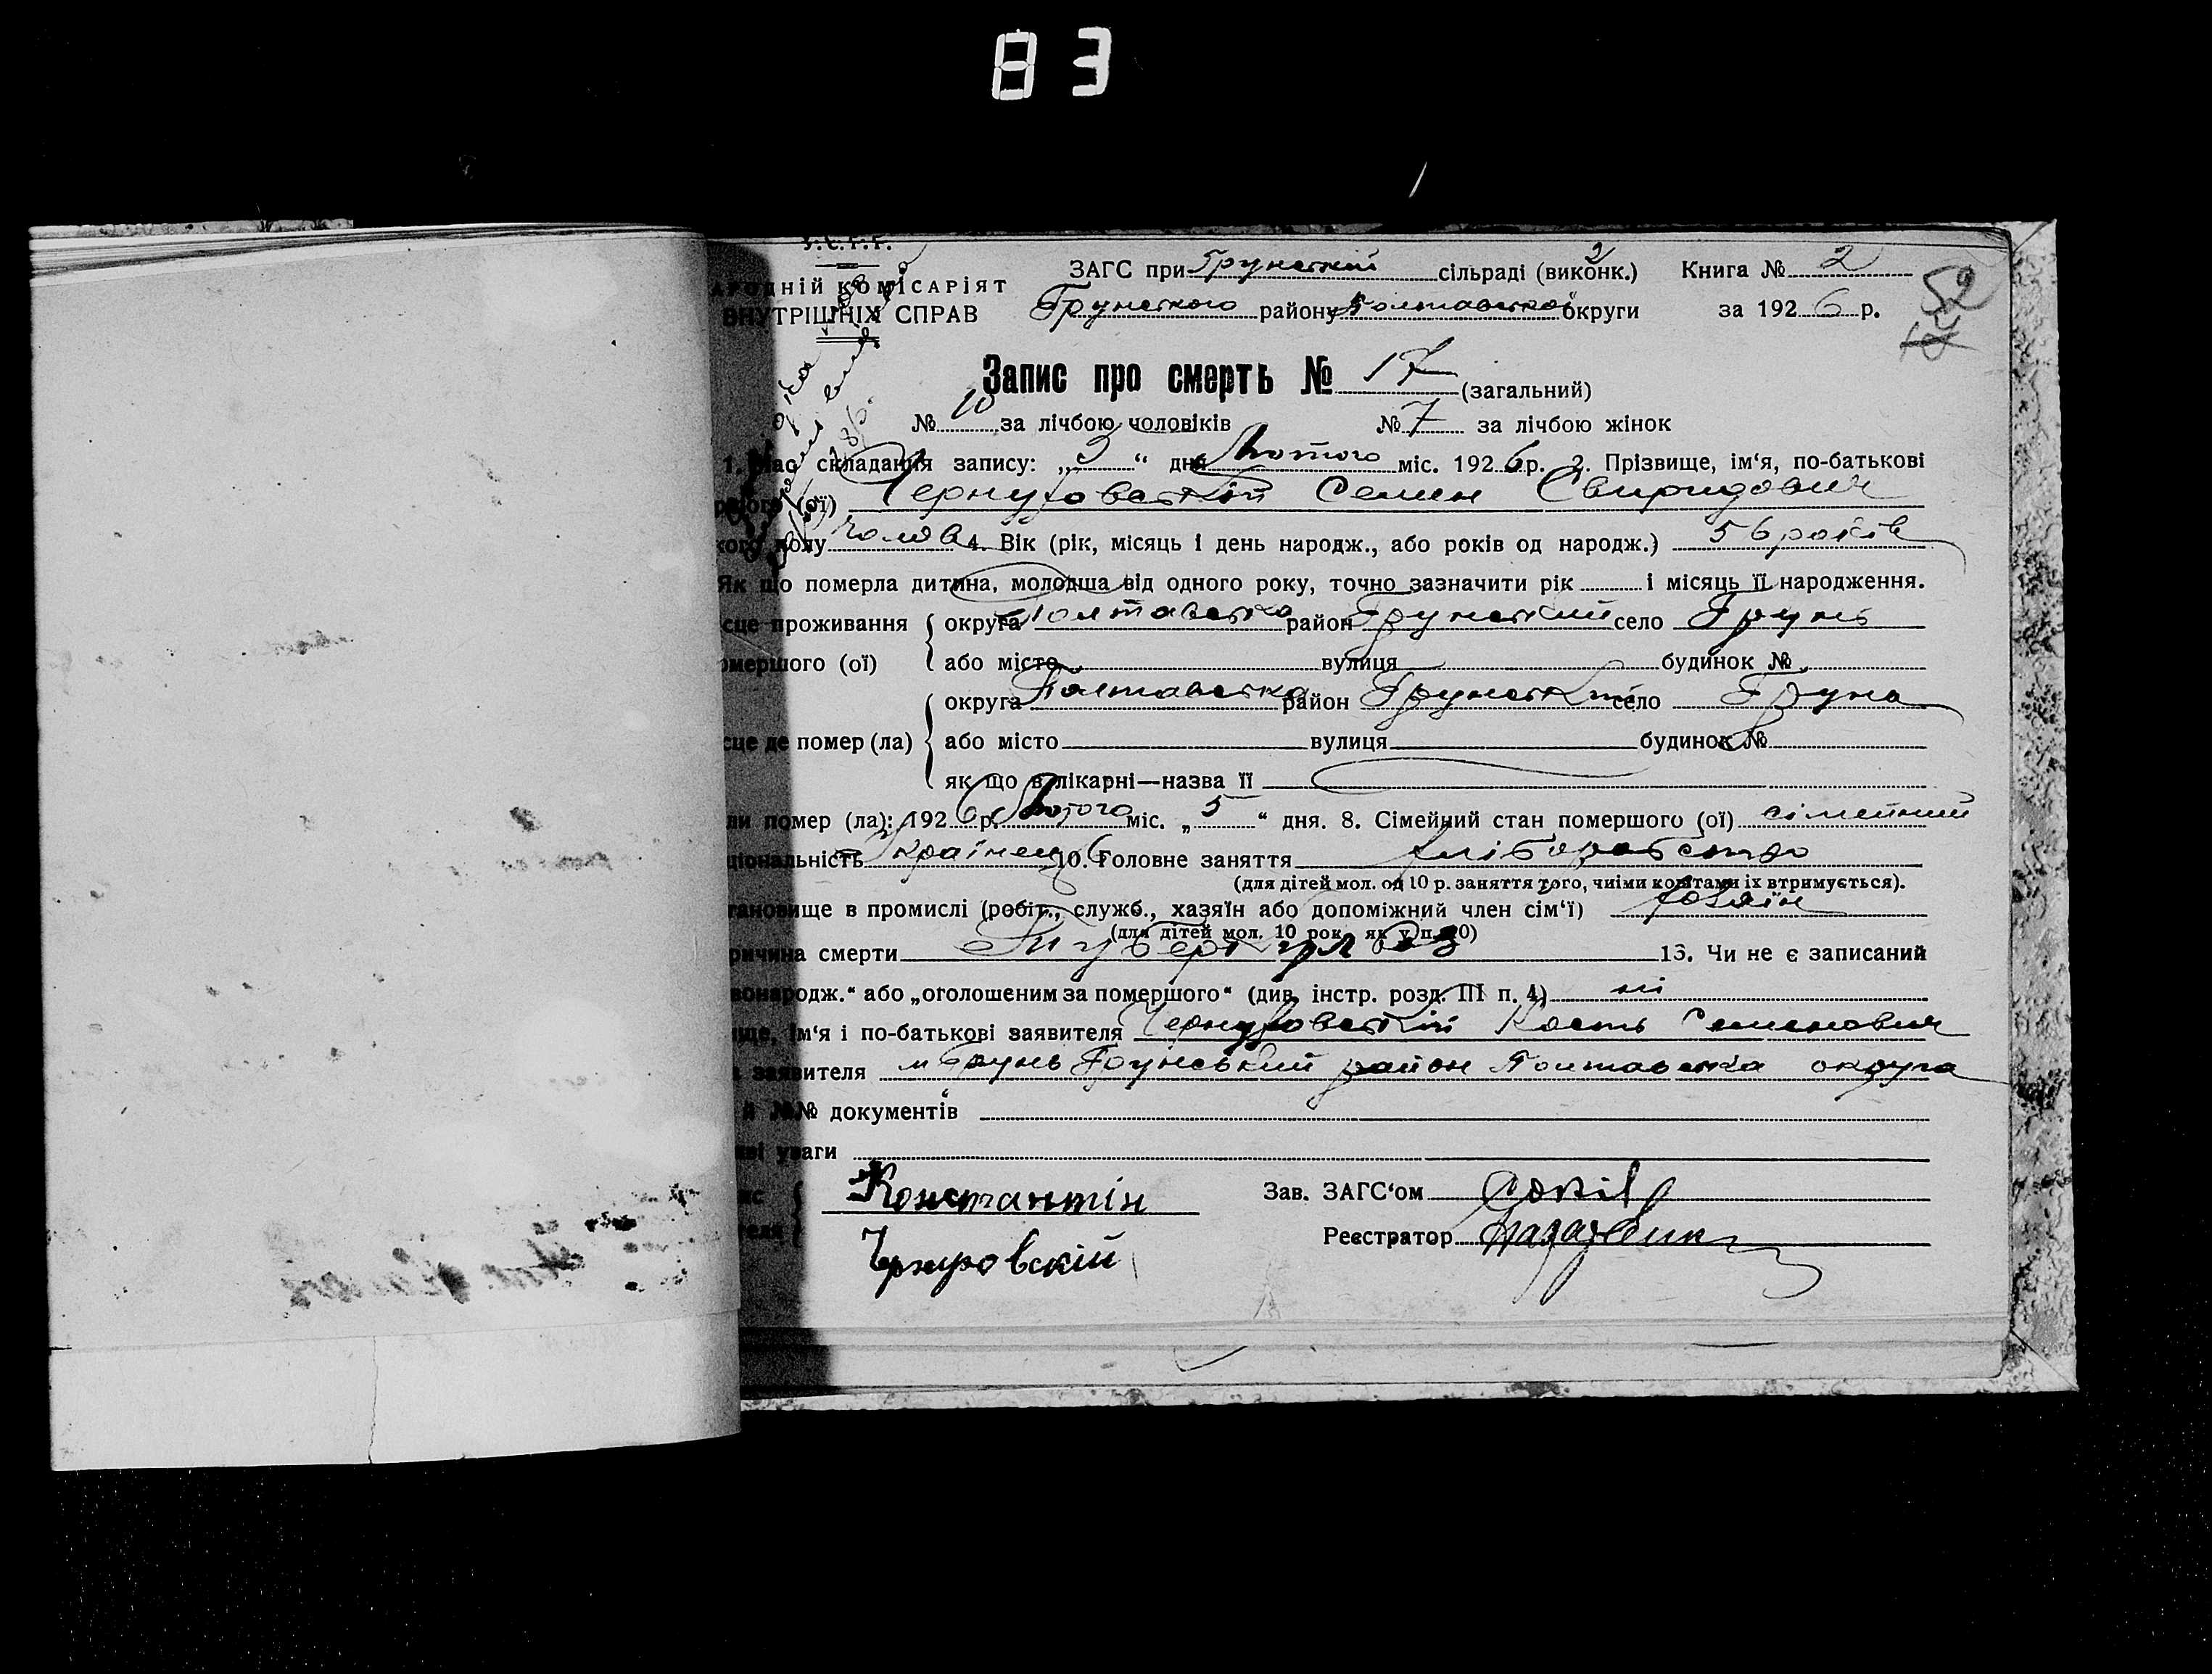 83
У.С.Р.Р.
НАРОДНІЙ КОМІСАРІЯТ
ВНУТРІШНІХ СПРАВ
ЗАГС при Грунській 2 сільраді (виконк.) Книга № 2
Грунського району Полтавської округи за 1926 р.
52
17
Запис про смерть № 17 (загальний)
№ 10 за лічбою чоловіків № 7 за лічбою жінок
1. Час складання запису: „ “ дня Лютого міс. 1926 р. 2. Прізвище, ім‘я, по-батькові
рлого (ої) Семен Свиридович
кого полу Чолов 4. Вік (рік, місяць і день народж., або років од народж.) 56 років
Як що померла дитина, молодша від одного року, точно зазначити рік і місяць її народження.
сце проживання округа Полтавська район Грунський село Грунь
омершого (ої) або місто вулиця будинок №
округа Полтавська район Грунський село Груна
сце де помер (ла) або місто вулиця будинок №
як що в лікарні—назва її
ли помер (ла): 1926 р. Лютого міс. „ 5 “ дня. 8. Сімейний стан помершого (ої) сімейний
ціональність Українець 10. Головне заняття хліборобство
(для дітей мол. од 10 р. заняття того, чиїми коштами їх втримується).
тановище в промислі (робіт., служб., хазяїн або допоміжний член сім‘ї) хозяїн
(для дітей мол. 10 рок. як у п. 10)
ричина смерти Туберкульоз 13. Чи не є записаний
вонародж.“ або „оголошеним за помершого“ (див. інстр. розд. III п. 4) ні
ище, ім‘я і по-батькові заявителя Кость Семенович
а заявителя м Грунь Грунський район Полтавська округа
й №№ документів
иві уваги
ис Константін Зав. ЗАГС‘ом
теля Реєстратор